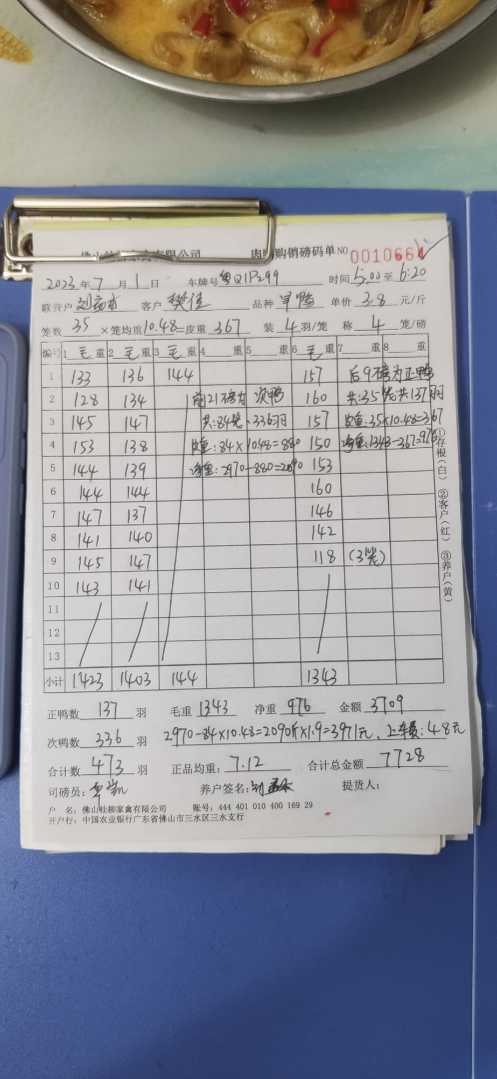 有限公司 购销磅码单 NO 0010664
2023 年 7 月 1 日 车牌号 粤Q1P299 时间 5:00 至 6:20
联养户 客户 樊佳 品种 单价 3.8 元/斤
笼数 35 ×笼均重 10.48 =皮重 367 装 4 羽/笼 称 4 笼/磅
编号 1 毛 重 2 毛 重 3 毛 重 4 重 5 重 6 毛 重 7 重 8 重
1 133 136 144 157 后9磅为正鸭
2 128 134 前21磅为 次鸭 160 共:35笼共137羽
3 145 147 共:84笼、336羽 157 皮重:35×10.48=367
4 153 138 皮重:84×10.48=880 150 净重:1343-367=976
5 144 139 净重:2970-880=2090 153
6 144 144 160
7 147 137 146
8 141 140 142
9 145 147 118 (3笼)
10 143 141
11
12
13
小计 1423 1403 144 1343
①存根(白) ②客户(红) ③养户(黄)
正鸭数 137 羽 毛重 1343 净重 976 金额 3709
次鸭数 336 羽 2970-84×10.48=2090斤×1.9=3971元、上车费:48元
合计数 473 羽 正品均重: 7.12 合计总金额 7728
司磅员: 养户签名: 提货人:
户 名:佛山牡柳家禽有限公司 账号:444 401 010 400 169 29
开户行:中国农业银行广东省佛山市三水区三水支行